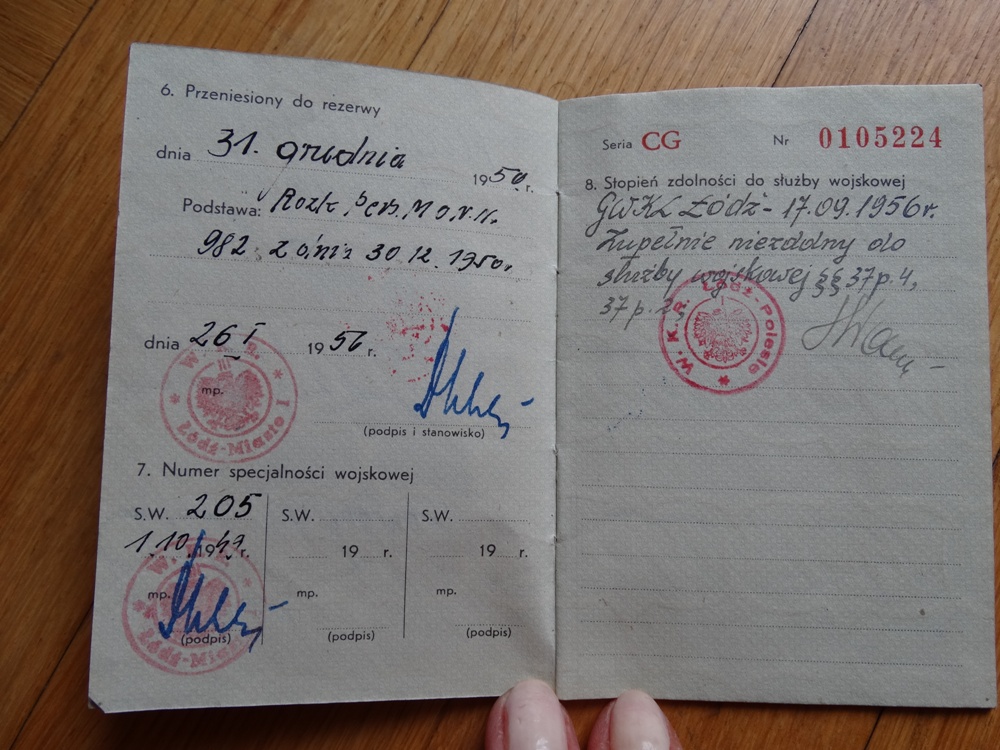 6. Przeniesiony do rezerwy
dnia 31. grudnia 1950. r.
Podstawa: Rozk. Pers. M.O.N. N.
982 z dnia 30 12. 1950.
dnia 26 I 1956 r.
W. K. R.
III
mp.
Łódź-Miasto I
(podpis i stanowisko)
7. Numer specjalności wojskowej
S.W. 205 S.W. S.W.
1.10 1949 r. 19 r. 19 r.
W. K. R.
mp. mp. mp.
(podpis) (podpis) (podpis)
Łódź-Miasto I
Seria CG Nr 0105224
8. Stopień zdolności do służby wojskowej
GWKL Łódź - 17.09.1956r.
Zupełnie niezdolny do
służby wojskowej §§ 37 p. 4,
37 p. 2.
W. K. R. Łódź-Polesie